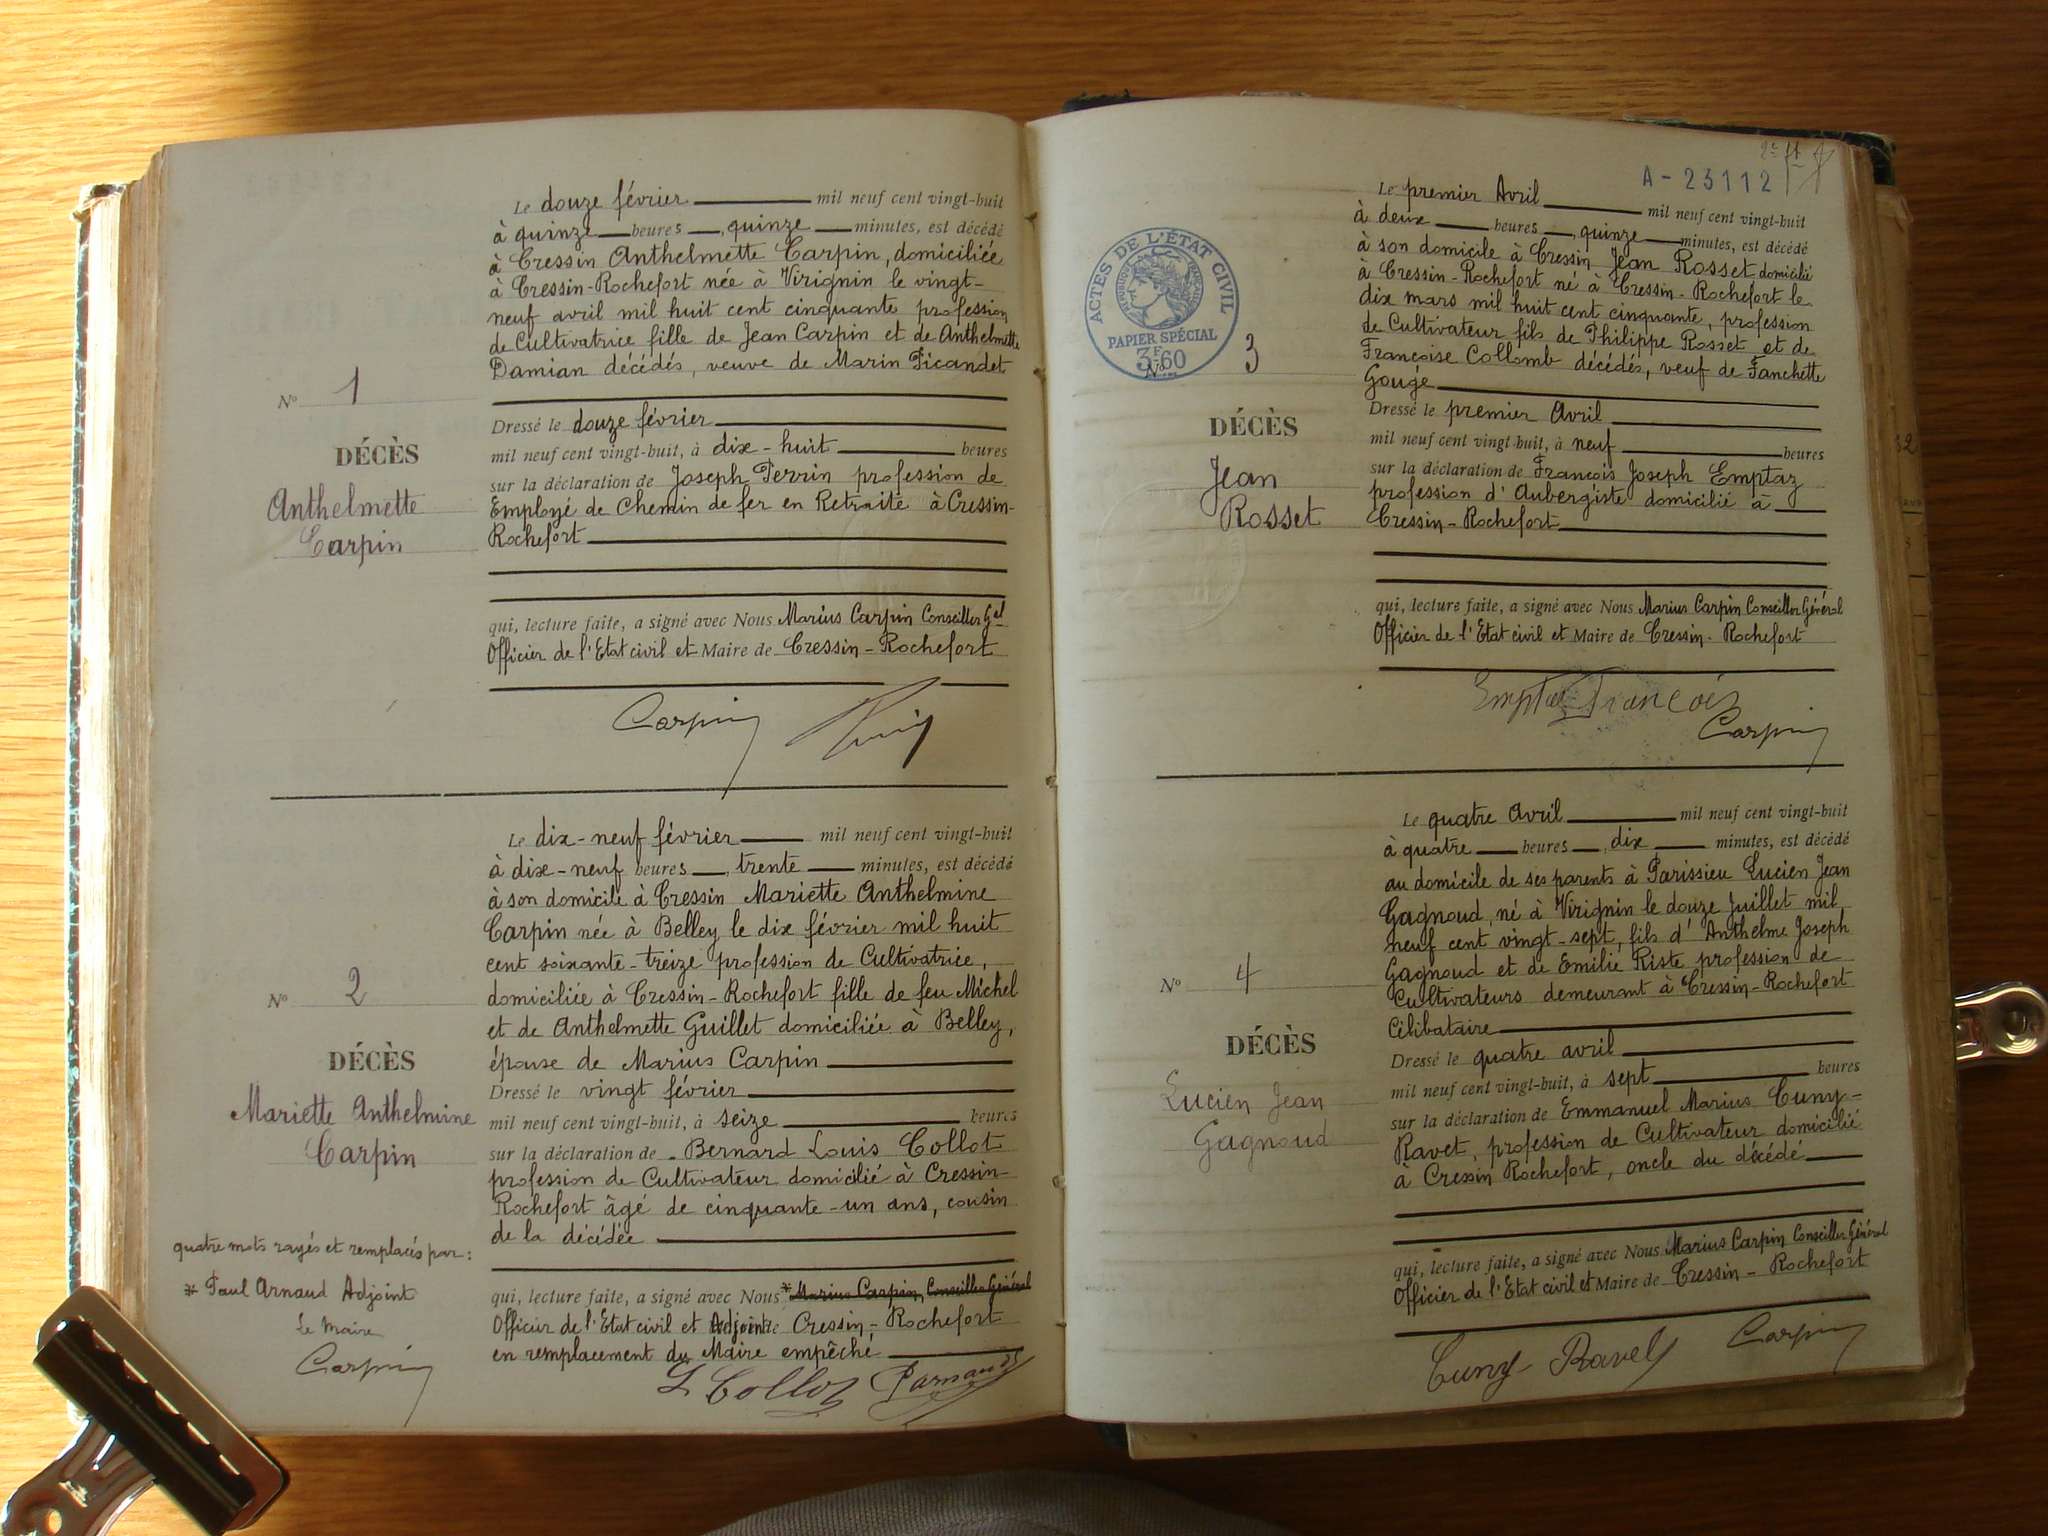 Le douze février mil neuf cent vingt-huit
à quinze heures, quinze minutes, est décédé
à Cressin Anthelmette Carpin, domiciliée
à Cressin-Rochefort née à Virignin le vingt-
neuf avril mil huit cent cinquante profession
de Cultivatrice fille de Jean Carpin et de Anthelmette
Damian décédés, veuve de Marin Picandet
N° 1
DÉCÈS
Anthelmette
Carpin
Dressé le douze février
mil neuf cent vingt-huit, à dix-huit heures
sur la déclaration de Joseph Perrin profession de
Employé de Chemin de fer en Retraite à Cressin-
Rochefort
qui, lecture faite, a signé avec Nous Marius Carpin Conseiller Gel
Officier de l'Etat civil et Maire de Cressin-Rochefort
Carpin
Le dix-neuf février mil neuf cent vingt-huit
à dix-neuf heures, trente minutes, est décédé
à son domicile à Cressin Mariette Anthelmine
Carpin née à Belley le dix février mil huit
cent soixante-treize profession de Cultivatrice,
domiciliée à Cressin-Rochefort fille de feu Michel
et de Anthelmette Guillet domiciliée à Belley,
épouse de Marius Carpin
N° 2
DÉCÈS
Mariette Anthelmine
Carpin
Dressé le vingt février
mil neuf cent vingt-huit, à seize heures
sur la déclaration de Bernard Louis Collot
profession de Cultivateur domicilié à Cressin-
Rochefort âgé de cinquante-un ans, cousin
de la décédée
quatre mots rayés et remplacés par :
* Paul Arnaud Adjoint
Le Maire
Carpin
qui, lecture faite, a signé avec Nous * Marius Carpin, Conseiller Général
Officier de l'Etat civil et Adjoint de Cressin-Rochefort
en remplacement du Maire empêché
L Collot P Arnaud
A-23112
ACTES DE L'ÉTAT CIVIL
RÉPUBLIQUE FRANÇAISE
PAPIER SPÉCIAL
3F60
Le premier Avril mil neuf cent vingt-huit
à deux heures, quinze minutes, est décédé
à son domicile à Cressin Jean Rosset domicilié
à Cressin-Rochefort né à Cressin-Rochefort le
dix mars mil huit cent cinquante, profession
de Cultivateur fils de Philippe Rosset et de
Françoise Collomb décédés, veuf de Fanchette
Gougé
N° 3
DÉCÈS
Jean
Rosset
Dressé le premier Avril
mil neuf cent vingt-huit, à neuf heures
sur la déclaration de François Joseph Emptaz
profession d'Aubergiste domicilié à
Cressin-Rochefort
qui, lecture faite, a signé avec Nous Marius Carpin Conseiller Général
Officier de l'Etat civil et Maire de Cressin-Rochefort
Emptaz François
Carpin
Le quatre Avril mil neuf cent vingt-huit
à quatre heures, dix minutes, est décédé
au domicile de ses parents à Parissieu Lucien Jean
Gagnoud, né à Virignin le douze Juillet mil
neuf cent vingt-sept, fils d'Anthelme Joseph
Gagnoud et de Emilie Riste profession de
Cultivateurs demeurant à Cressin-Rochefort
Célibataire
N° 4
DÉCÈS
Lucien Jean
Gagnoud
Dressé le quatre avril
mil neuf cent vingt-huit, à sept heures
sur la déclaration de Emmanuel Marius Cuny-
Ravet, profession de Cultivateur domicilié
à Cressin Rochefort, oncle du décédé
qui, lecture faite, a signé avec Nous Marius Carpin Conseiller Général
Officier de l'Etat civil et Maire de Cressin-Rochefort
Cuny Ravet Carpin